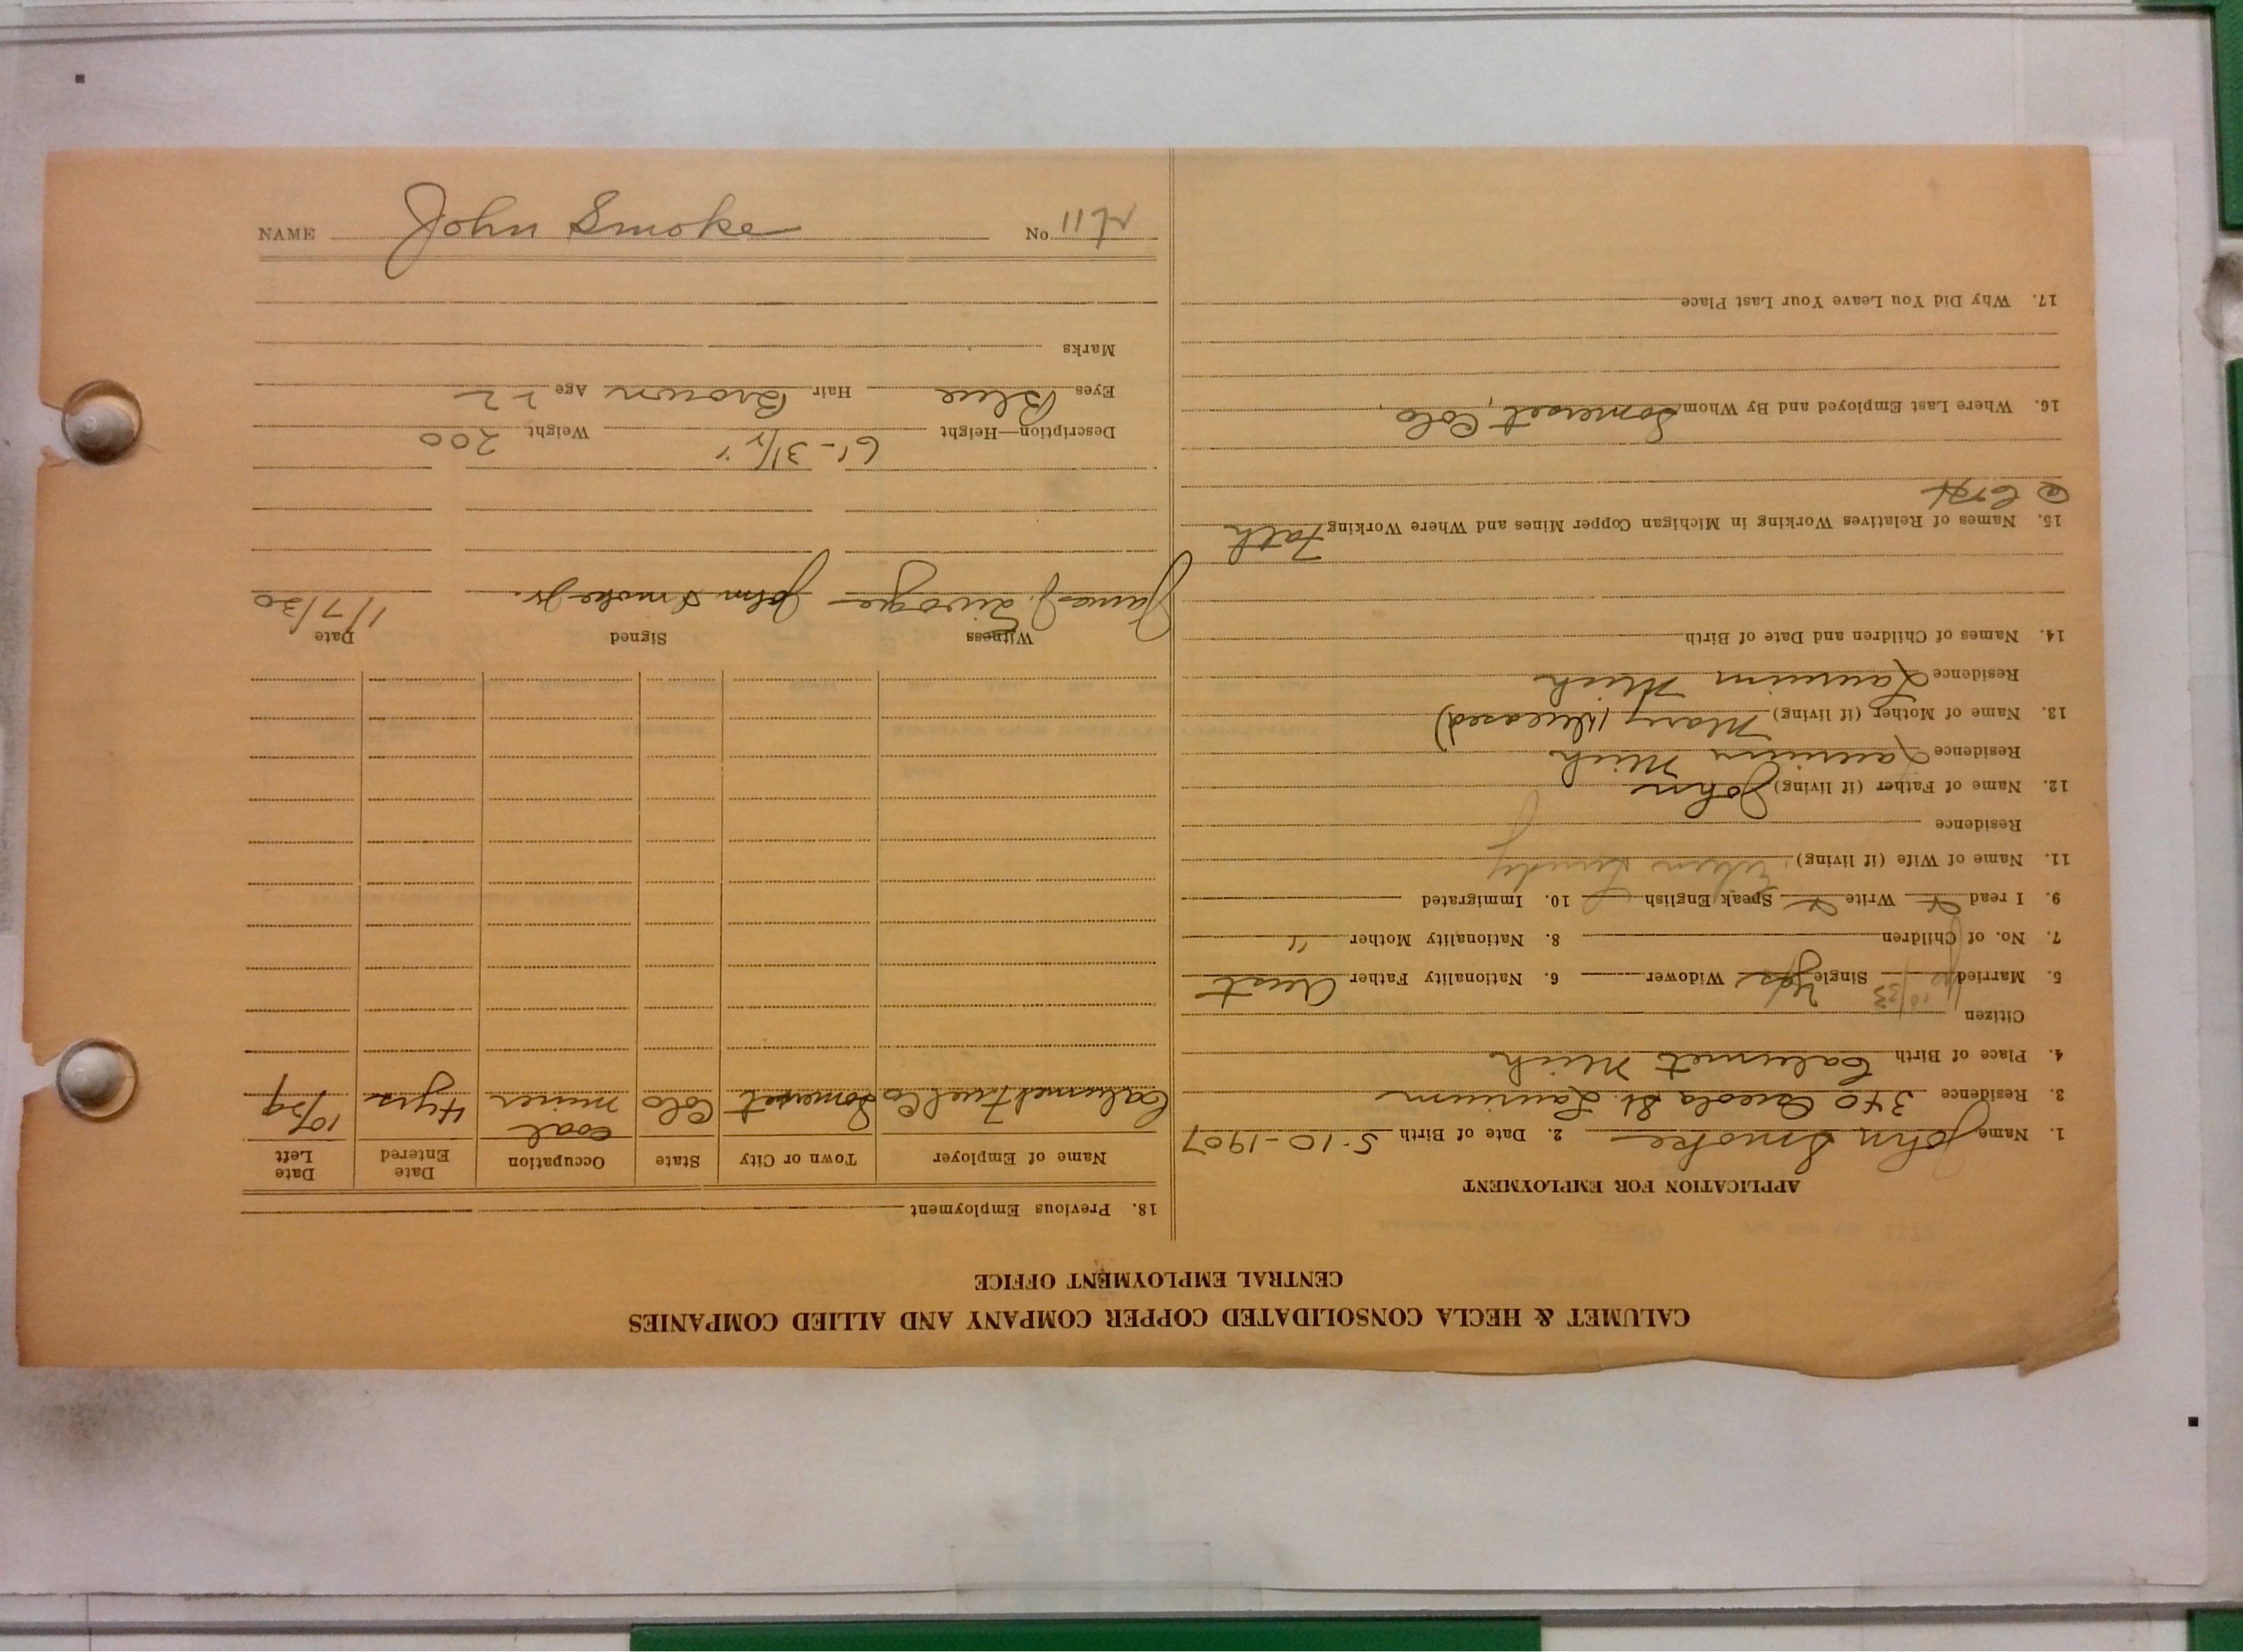 NAME John Smoke No.
CALUMET & HECLA CONSOLIDATED COPPER COMPANY AND ALLIED COMPANIES
CENTRAL EMPLOYMENT OFFICE
APPLICATION FOR EMPLOYMENT
1. Name John Smoke 2. Date of Birth 5-10-1907
3. Residence 340 Osceola St. Laurium
4. Place of Birth Calumet Mich
Citizen
5. Married yes 10/33 Single Yes Widower 6. Nationality Father Aust
7. No. of Children 8. Nationality Mother "
9. I read Write Speak English 10. Immigrated
11. Name of Wife (if living)
Residence
12. Name of Father (if living) John
Residence Laurium Mich
13. Name of Mother (if living) Mary (deceased)
Residence Laurium Mich
14. Names of Children and Date of Birth
15. Names of Relatives Working in Michigan Copper Mines and Where Working Fath
16. Where Last Employed and By Whom Somerset, Colo,
17. Why Did You Leave Your Last Place
18. Previous Employment
Name of Employer Town or City State Occupation Date Entered Date Left
Calumet Fuel Co Somerset Colo coal miner 4 yrs 10/29
Witness Signed Date
James J. John Smoke Jr. 1/7/30
Description—Height 6'-3 1/2" Weight 200
Eyes Blue Hair Brown Age 22
Marks